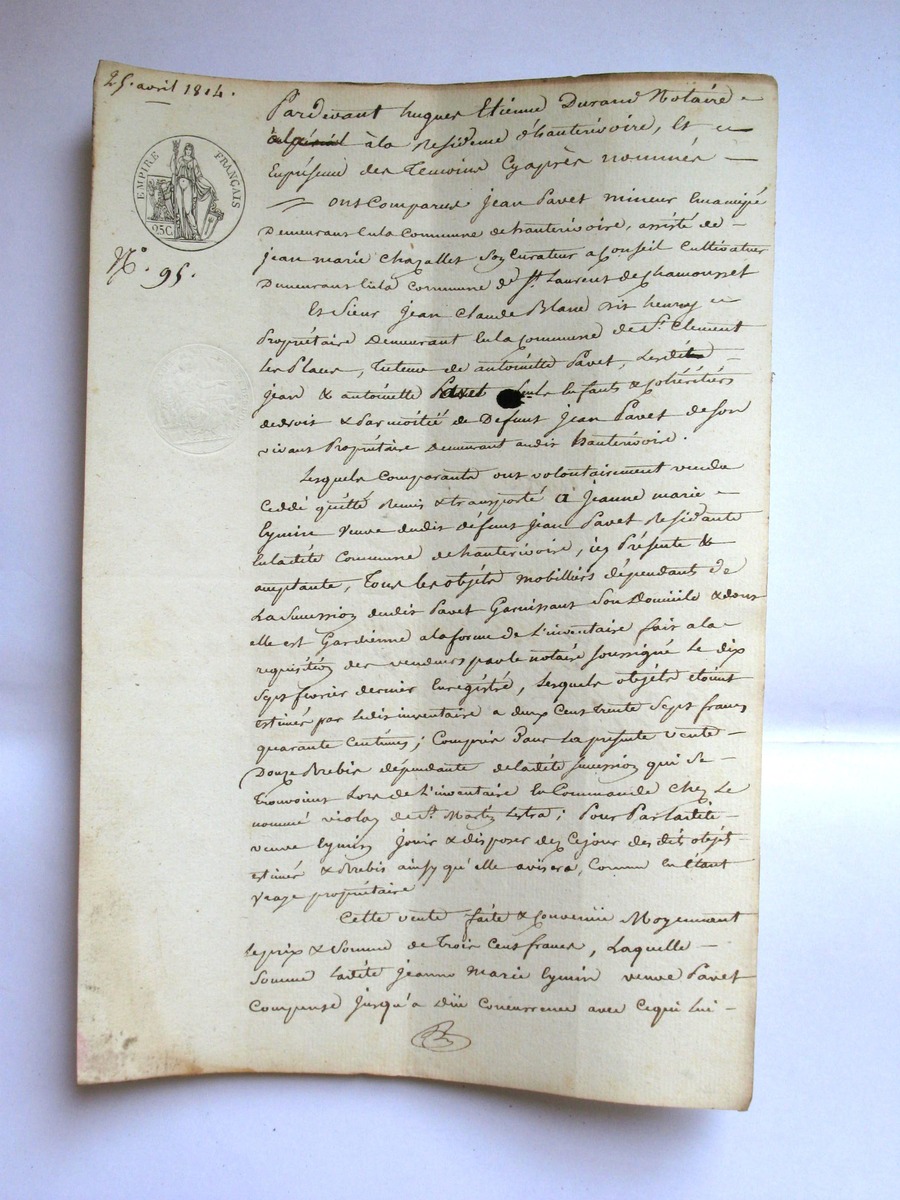 25. avril 1814.
EMPIRE FRANÇAIS
25C
N.° 95.
Pardevant hugues Etienne Durand Notaire
à la Residence d'hauterivoire, Et
En présence des Temoins Cyaprès nommés
ont Comparus Jean Pavet mineur Emancipé
Demeurant En la Commune de hauterivoire, assisté de
jean marie chazallet Son Curateur a Conseil Cultivateur
Demeurant En la Commune de St. Laurent de Chamousset
Et Sieur Jean Claude Blanc dit henry
Propriétaire Demeurant En la Commune de St. Clement
Les Places, Tuteur de antoinette Pavet, Lesdits
jean & antoinette Pavet Enfants & cohéritiers
de droit & Par moitié de Defunt Jean Pavet de Son
vivant Propriétaire Demeurant audit hauterivoire.
Lesquels Comparants ont volontairement vendu
Ceddé quitté Remis & transporté a Jeanne marie
Eymin Veuve dudit défunt Jean Pavet Residante
En ladite Commune de hauterivoire, icy Présente &
acceptante, Tous les objets mobilliers dépendants de
La Succession dudit Pavet Garnissant Son Domicile & dont
elle est Gardienne a la forme de L'inventaire fait a la
requisition des vendeurs par le notaire soussigné Le dix
Sept fevrier dernier Enregistré, Lesquels objets etoient
estimés par ledit inventaire a deux Cent Trente Sept francs
quarante Centimes; Compris Dans La présente vente
Douze Brebis dépendante de ladite succession qui se
Trouvoient Lors de L'inventaire En Commande chez Le
nommé violay de St. Martin Lestra; Pour Par ladite
veuve Eymin Jouir & disposer dez Ce jour des dits objets
estimés & Brebis ainsy qu'elle avisera, Comme En Etant
Vraye propriétaire
Cette vente faite & Convenüe Moyennant
Le prix & Somme de Trois Cent francs, Laquelle
Somme Ladite Jeanne Marie Eymin veuve Pavet
Compense Jusqu'a Düe Concurrence avec Ce qui Lui